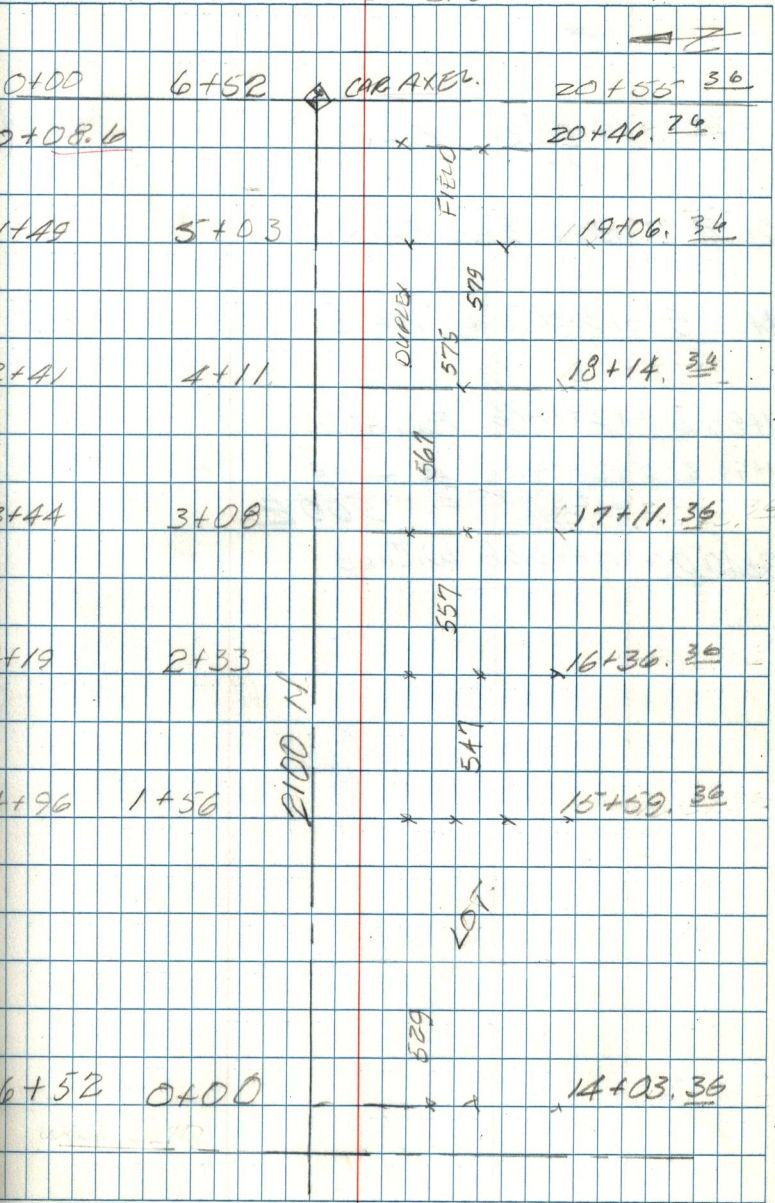 N
0+00 6+52 CAR AXEL. 20+55 36
0+08.6 20+46.76
FIELD
1+49 5+03 19+06.36
DUPLEX 575 579
2+41 4+11 18+14.36
567
3+44 3+08 17+11.36
557
+19 2+33 16+36.36
2100 N. 547
4+96 1+56 15+59.36
LOT.
529
6+52 0+00 14+03.36